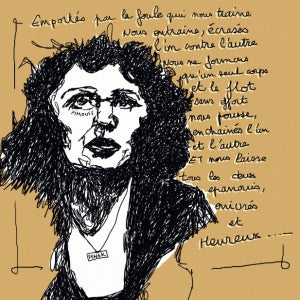 Emportés par la foule qui nous traine
Nous entraine, écrasés
l'un contre l'autre
Nous ne formons
qu'un seul corps
et le flot
sans effort
nous pousse,
enchainés l'un
et l'autre
ET nous laisse
tous les deux
épanouis,
enivrés
et
Heureux ----